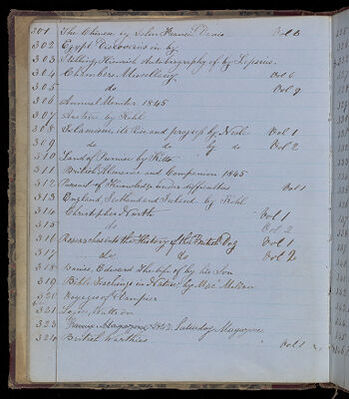 301 The Chinese by John Francis Davis Vol 6
302 Egypt Discoveries in by
303 Stilling Heinrich Autobiography of by Lepsius.
304 Chambers Miscellany Vol 6
305 do Vol 9
306 Annual Monitor 1845
307 by Kohl
308 Islamism, its Rise and progress by Neale Vol 1
309 do do by do Vol 2
310 Land of by Kitto
311 British Almanac and Companion 1845
312 Pursuit of Knowledge under difficulties Vol 1
313 England Scotland and Ireland by Kohl
314 Christopher North Vol 1
315 do Vol 2
316 Researches into the History of the British Dog Vol 1
317 do do Vol 2
318 Edward The life of by his Son
319 Bible Teachings in Nature by Mac Millan
320 Voyages of Dampier
321
323 Magazine 1842 Saturday Magazine
324 British Worthies Vol 1